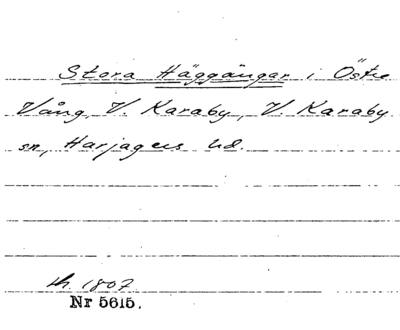 Stora Häggängar i Östre
Vång, V. Karaby, V. Karaby
sn, Harjagers hd.
1807
Nr 5615.